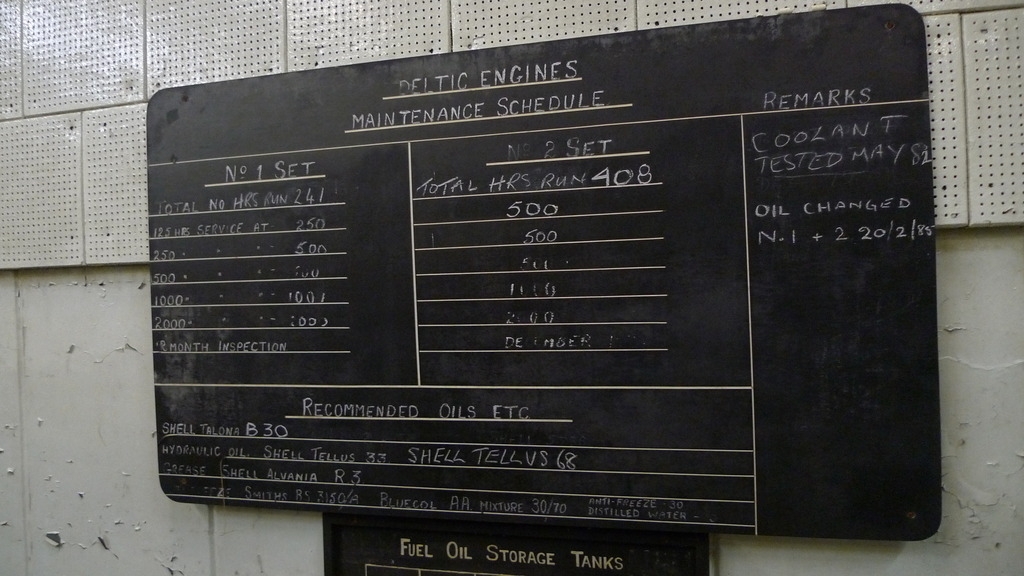 DELTIC ENGINES
MAINTENANCE SCHEDULE
Nº 1 SET
TOTAL NO HRS RUN 241
125 HRS SERVICE AT 250
250 " " " 500
500 " " "
1000 " " " 1000
2000 " " "
MONTH INSPECTION
Nº 2 SET
TOTAL HRS RUN 408
500
500
1000
2000
DECEMBER
REMARKS
COOLANT
TESTED MAY 82
OIL CHANGED
N.1 + 2 20/2/85
RECOMMENDED OILS ETC
SHELL TALONA B30
HYDRAULIC OIL. SHELL TELLUS 33 SHELL TELLUS 68
GREASE SHELL ALVANIA R.3
SMITHS RS 3150/A BLUECOL AA MIXTURE 30/70 ANTI-FREEZE 30
DISTILLED WATER -
FUEL OIL STORAGE TANKS